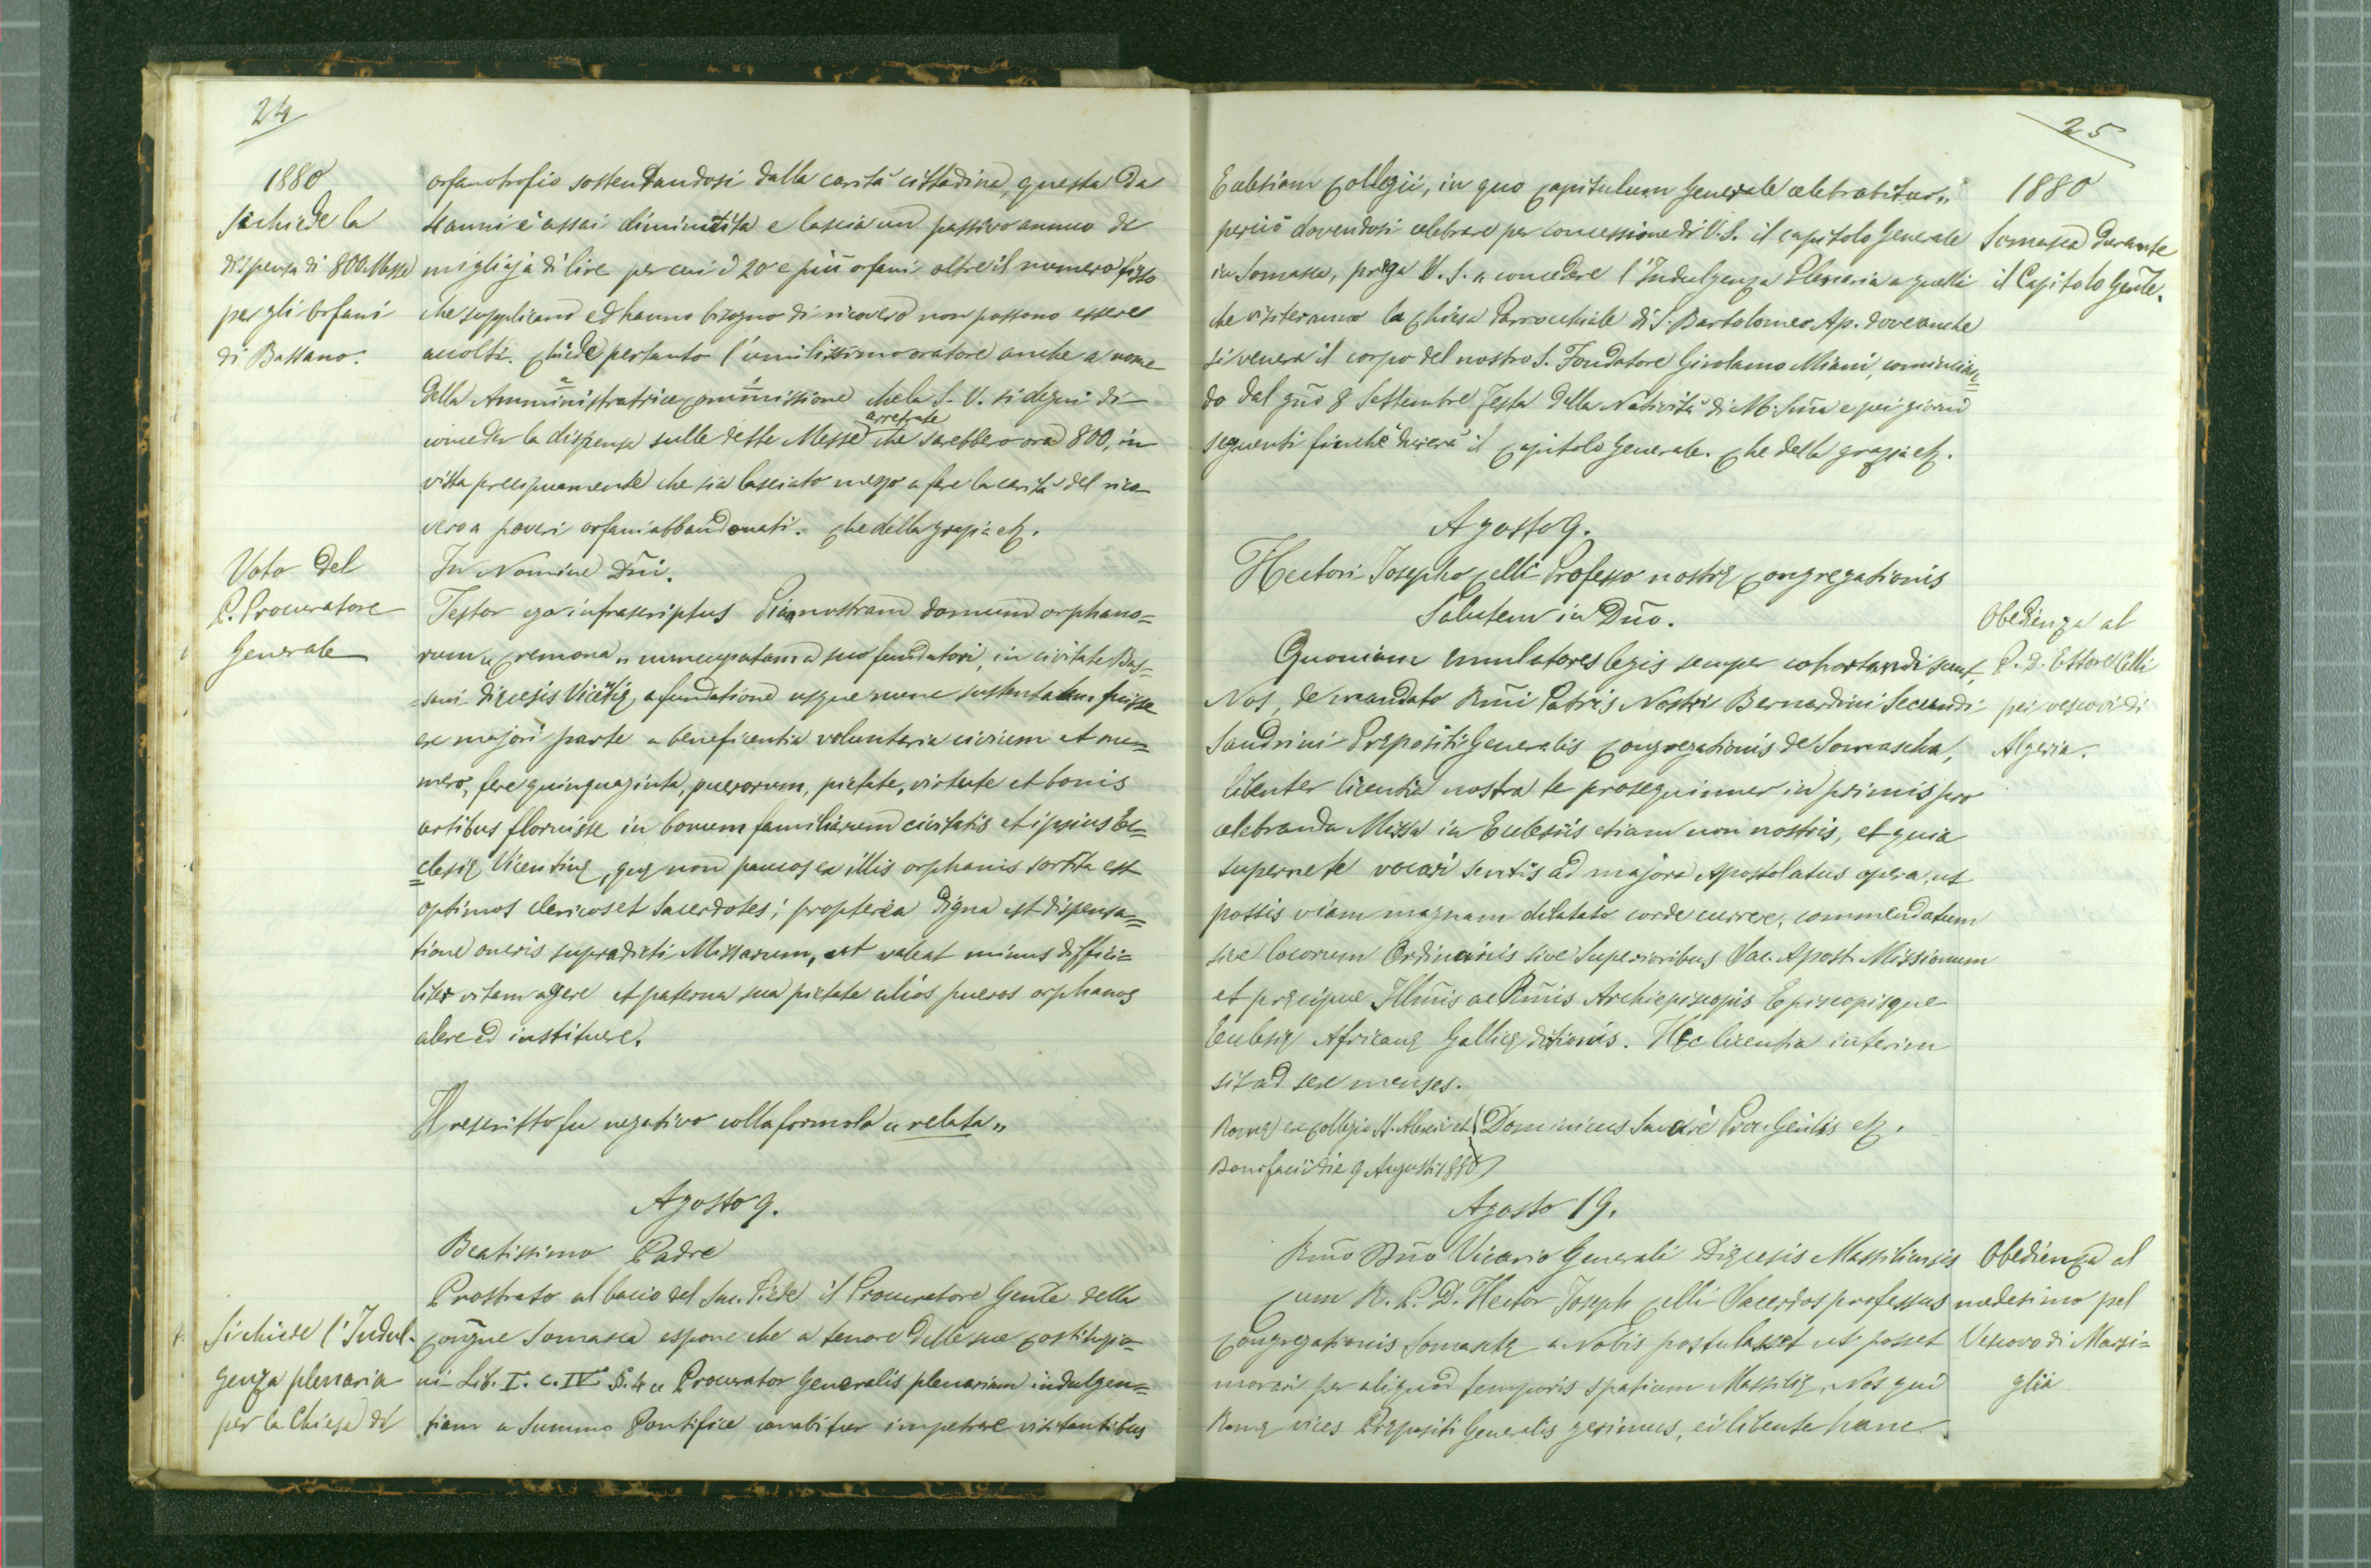 24
1880
Si chiede la
dispensa di 800 Messe
per gli orfani
di Bassano.
orfanotrofio sostentandosi dalla carità cittadina, questa da
4 anni è assai diminuita e lascia un passivo annuo di
migliaja di lire per cui i 20 e più orfani oltre il numero fisso
che supplicano ed hanno bisogno di ricovero non possono essere
accolti. Chiede pertanto l'umilissimo oratore anche a nome
della Amministratrice Commissione che la S. V. si degni di
arretrate
conceder la dispensa sulle dette Messe che sarebbero ora 800, in
vista precipuamente che sia lasciato mezzo a fare la carità del rico-
vero a poveri orfani abbandonati. Che della grazia etz.
Voto del
P. Procuratore
Generale
In Nomine Dñi.
Testor ego infrascriptus Piam nostram domum orphano=
rum „ Cremona „ nuncupatam a suo fundatori, in civitate Bas=
=sani Diœcesis Vicetię, a fundatione usque nunc sustentatam fuisse
ex majori parte a beneficentia voluntaria civium et nu=
mero, fere quinquaginta, puerorum, pietate, virtute et bonis
artibus floruisse in bonum familiarum civitatis et ipsius Ec=
=clesię Vicentinę, quę non paucos ex illis orphanis sortita est
optimos clericos et Sacerdotes; propterea digna est dispensa=
tione oneris supradicti Missarum, ut valeat minus diffici=
liter vitam agere et paterna sua pietate alios pueros orphanos
alere ed instituere.
Il rescritto fu negativo colla formola „ relata „
Agosto 9.
Beatissimo Padre
Si chiede l'Indul-
genza plenaria
per la Chiesa di
Prostrato al bacio del Sac. Piede il Procuratore Gen͠le della
Congñe Somasca espone che a tenore delle sue Costituzio-
ni Lib. I. c. IV. §. 4 „ Procurator Generalis plenariam indulgen=
tiam a Summo Pontifice curabitur impetrare visitantibus
25
1880
Somasca durante
il Capitolo Gen͠le.
Ecclesiam Collegii, in quo Capitulum Generale celebrabitur „
perciò dovendosi celebrare per concessione di V. S. il capitolo Generale
in Somasca, prega V. S. a concedere l'Indulgenza Plenaria a quelli
che visiteranno la Chiesa Parrocchiale di S. Bartolomeo Ap. dove anche
si venera il corpo del nostro S. Fondatore Girolamo Miani, comincian=
do dal gñō 8 Settembre festa della Natività di M. Sñia e pei giorni
seguenti finchè durerà il Capitolo Generale. Che della grazia etz.
Agosto 9.
Hectori Josepho Celli Professo nostrę Congregationis
Salutem in Dño.
Obedienza al
P. D. Ettore Celli
pei vescovi di
Algeria.
Quoniam emulatores legis semper cohortandi sunt,
Nos, de mandato Rmi Patris Nostri Bernardini Secundi
Sandrini Prępositi Generalis Congregationis de Somascha,
libenter licentia nostra te prosequimur in primis pro
celebranda Missa in Ecclesiis etiam non nostris, et quia
superne te vocari sentis ad majora Apostolatus opera, ut
possis viam magnam dilatato corde currere, commendatum
sive locorum Ordinariis sive Superioribus Sac. Apost. Missionum
et pręcipue Illm̃is ac Rm̃is Archiepiscopis Episcopisque
Ecclesię Africanę Gallicę ditionis. Hęc licentia interim
sit ad sex menses.
Romę ex Collegio SS. Alexii et
Bonifacii die 9 Augusti 1880
Dominicus Savarè Proc. Gen͠lis etz.
Agosto 19.
Rm̃o Dño Vicario Generali Diœcesis Massiliensis
Obedienza al
medesimo pel
Vescovo di Marsi=
glia
Cum R. P. D. Hector Joseph Celli Sacerdos professus
Congregationis Somaschę a Nobis postulasset ut posset
morari per aliquod temporis spatium Massilię, Nos qui
Romę vices Prępositi Generalis gerimus, ei libenter hanc